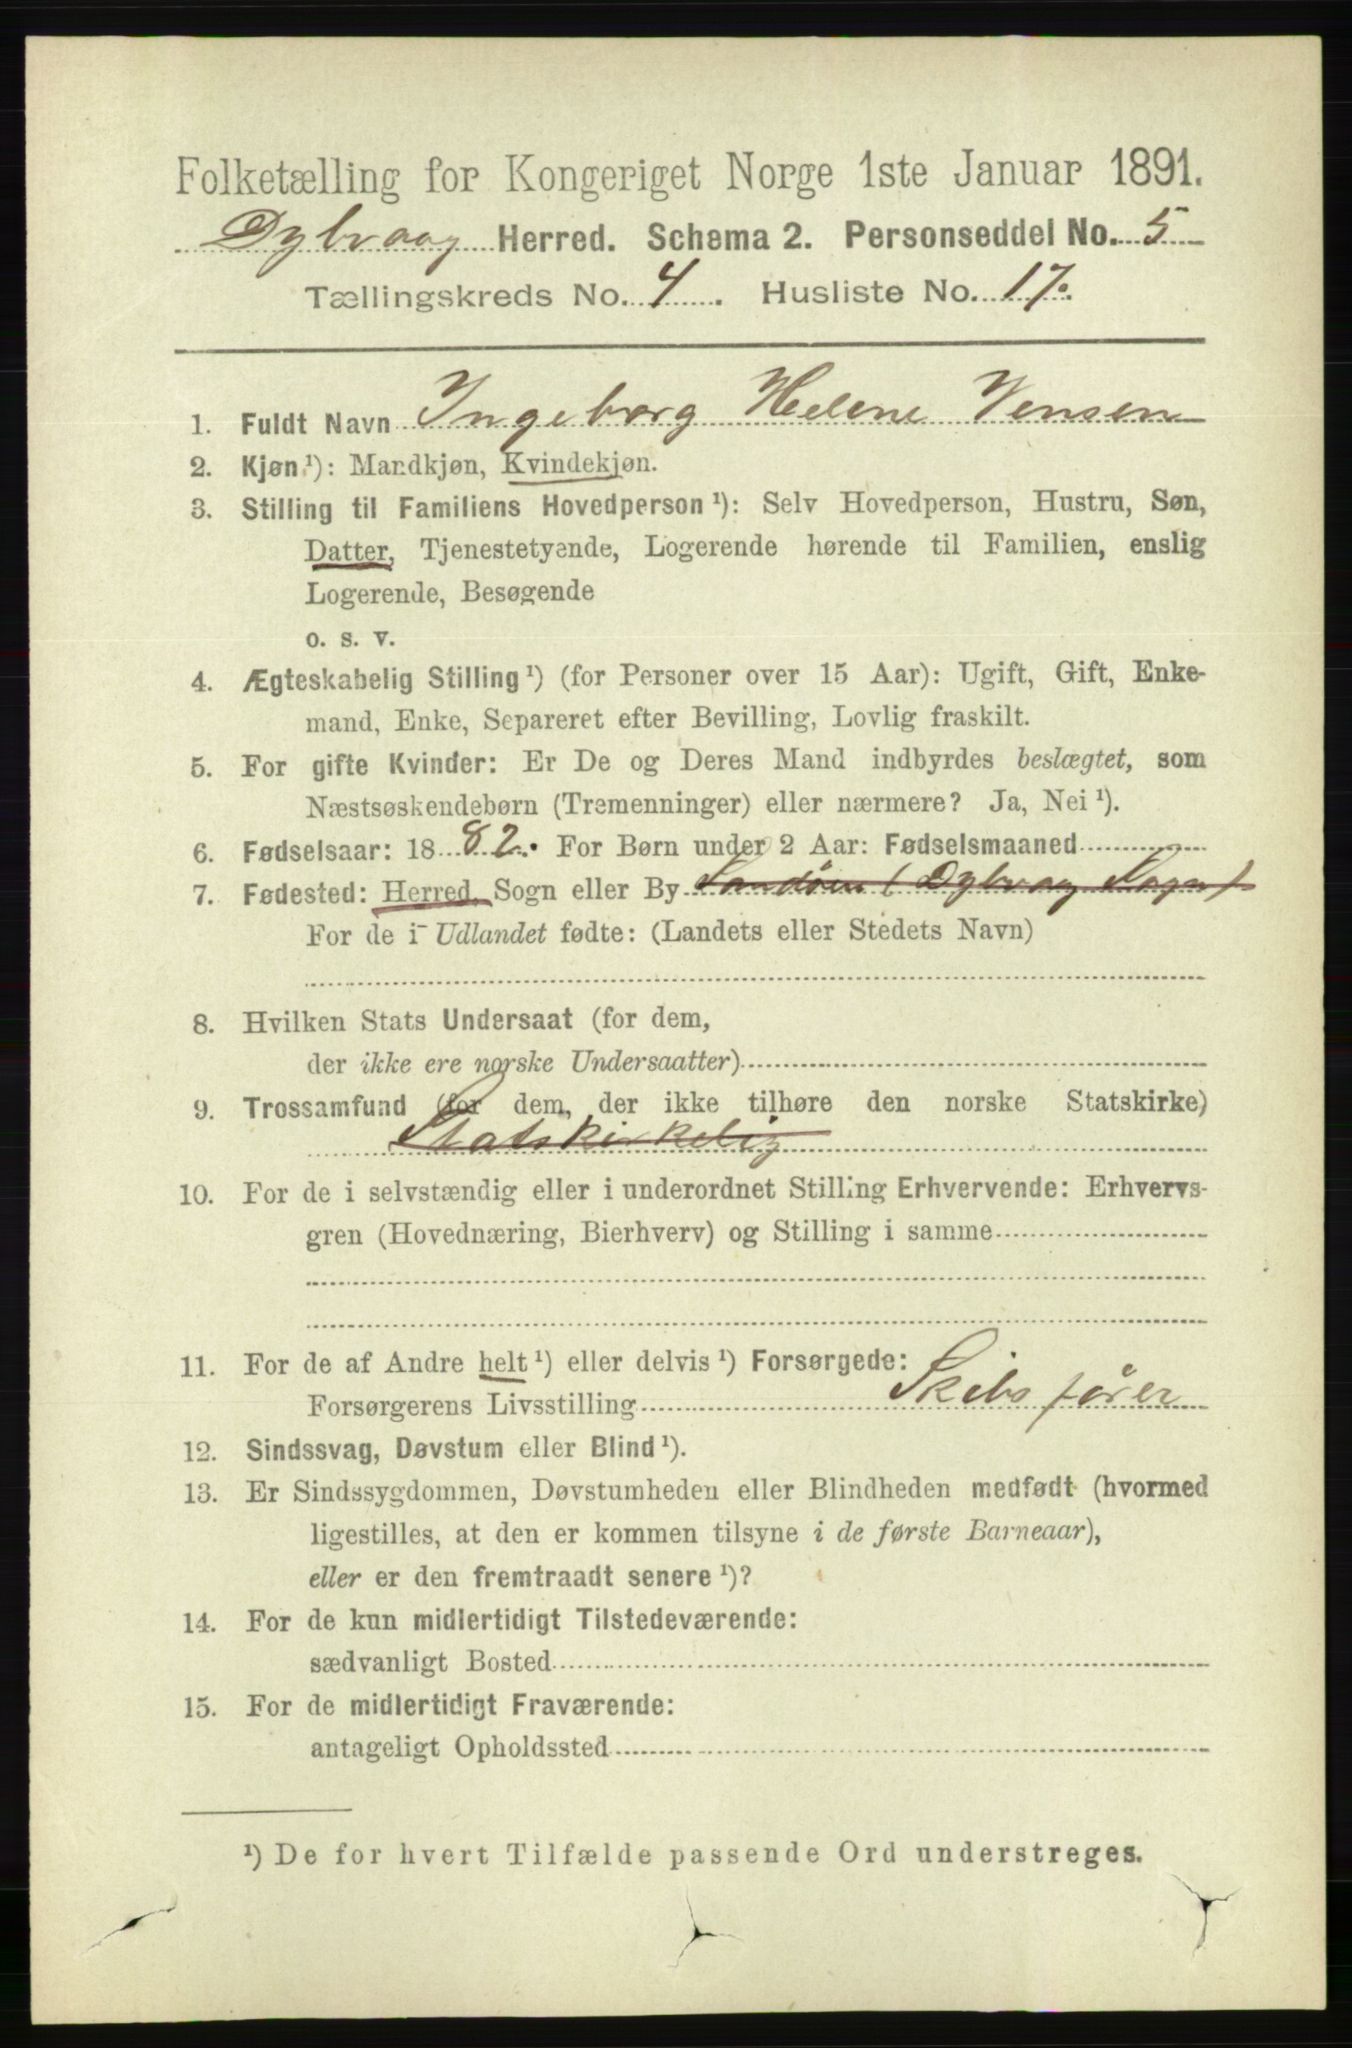 Folketælling for Kongeriget Norge 1ste Januar 1891.
Dybvaag Herred. Schema 2. Personseddel No. 5
Tællingskreds No. 4. Husliste No. 17.
1. Fuldt Navn Ingeborg Helene Jensen
2. Kjøn ¹): Mandkjøn, Kvindekjøn.
3. Stilling til Familiens Hovedperson ¹): Selv Hovedperson, Hustru, Søn,
Datter, Tjenestetyende, Logerende hørende til Familien, enslig
Logerende, Besøgende
o. s. v.
4. Ægteskabelig Stilling ¹) (for Personer over 15 Aar): Ugift, Gift, Enke-
mand, Enke, Separeret efter Bevilling, Lovlig fraskilt.
5. For gifte Kvinder: Er De og Deres Mand indbyrdes beslægtet, som
Næstsøskendebørn (Tremenninger) eller nærmere? Ja, Nei ¹).
6. Fødselsaar: 1882. For Børn under 2 Aar: Fødselsmaaned
7. Fødested: Herred, Sogn eller By Sandøen (Dybvag Sogn)
For de i Udlandet fødte: (Landets eller Stedets Navn)
8. Hvilken Stats Undersaat (for dem,
der ikke ere norske Undersaatter)
9. Trossamfund (for dem, der ikke tilhøre den norske Statskirke)
Statskirkelig
10. For de i selvstændig eller i underordnet Stilling Erhvervende: Erhvervs-
gren (Hovednæring, Bierhverv) og Stilling i samme
11. For de af Andre helt ¹) eller delvis ¹) Forsørgede:
Forsørgerens Livsstilling Skibsfører
12. Sindssvag, Døvstum eller Blind ¹).
13. Er Sindssygdommen, Døvstumheden eller Blindheden medfødt (hvormed
ligestilles, at den er kommen tilsyne i de første Barneaar),
eller er den fremtraadt senere ¹)?
14. For de kun midlertidigt Tilstedeværende:
sædvanligt Bosted
15. For de midlertidigt Fraværende:
antageligt Opholdssted
¹) De for hvert Tilfælde passende Ord understreges.